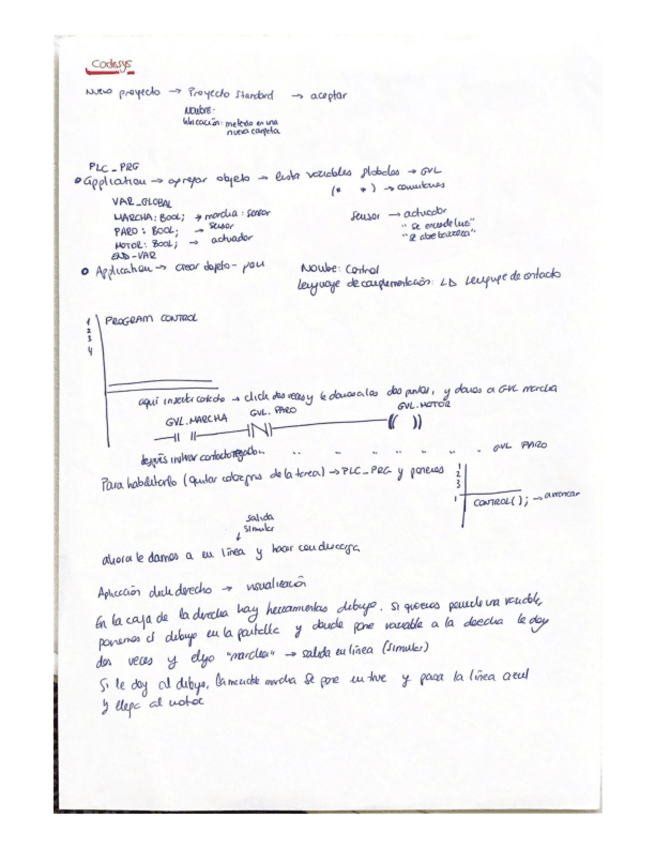 Codesys
Nuevo proyecto → Proyecto standard → aceptar
Nombre:
Ubicación: meterlo en una
nueva carpeta
PLC_PRG
Application → agregar objeto → lista variables globales → GVL
(* *) → comentarios
VAR_GLOBAL
MARCHA: BOOL; → marcha: sensor
PARO: BOOL; → sensor
MOTOR: BOOL; → actuador
END-VAR
Sensor → actuador
"se enciende luz"
"se abre barrera"
Application → crear objeto - pou
Nombre: Control
Lenguaje de : LD Lenguaje de contacto
1 PROGRAM CONTROL
2
3
4
aquí insertar contacto → click dos veces y le damos a los dos puntos, y damos a GVL marcha
GVL.MARCHA GVL.PARO GVL.MOTOR
después insertar contacto negado " " " " " " " GVL PARO
Para habilitarlo (quitar color gris de la tarea) → PLC_PRG y ponemos
1
2
3
1 CONTROL(); → arrancar
salida
simular
ahora le damos a en línea y hacer con descarga
Aplicación click derecho → visualización
En la caja de la derecha hay herramientas dibujo. Si queremos ponerle una variable,
ponemos el dibujo en la pantalla y donde pone variable a la derecha le doy
dos veces y elijo "marcha" → salida en línea (simular)
Si le doy al dibujo, marcha se pone en true y pasa la línea azul
y llega al motor